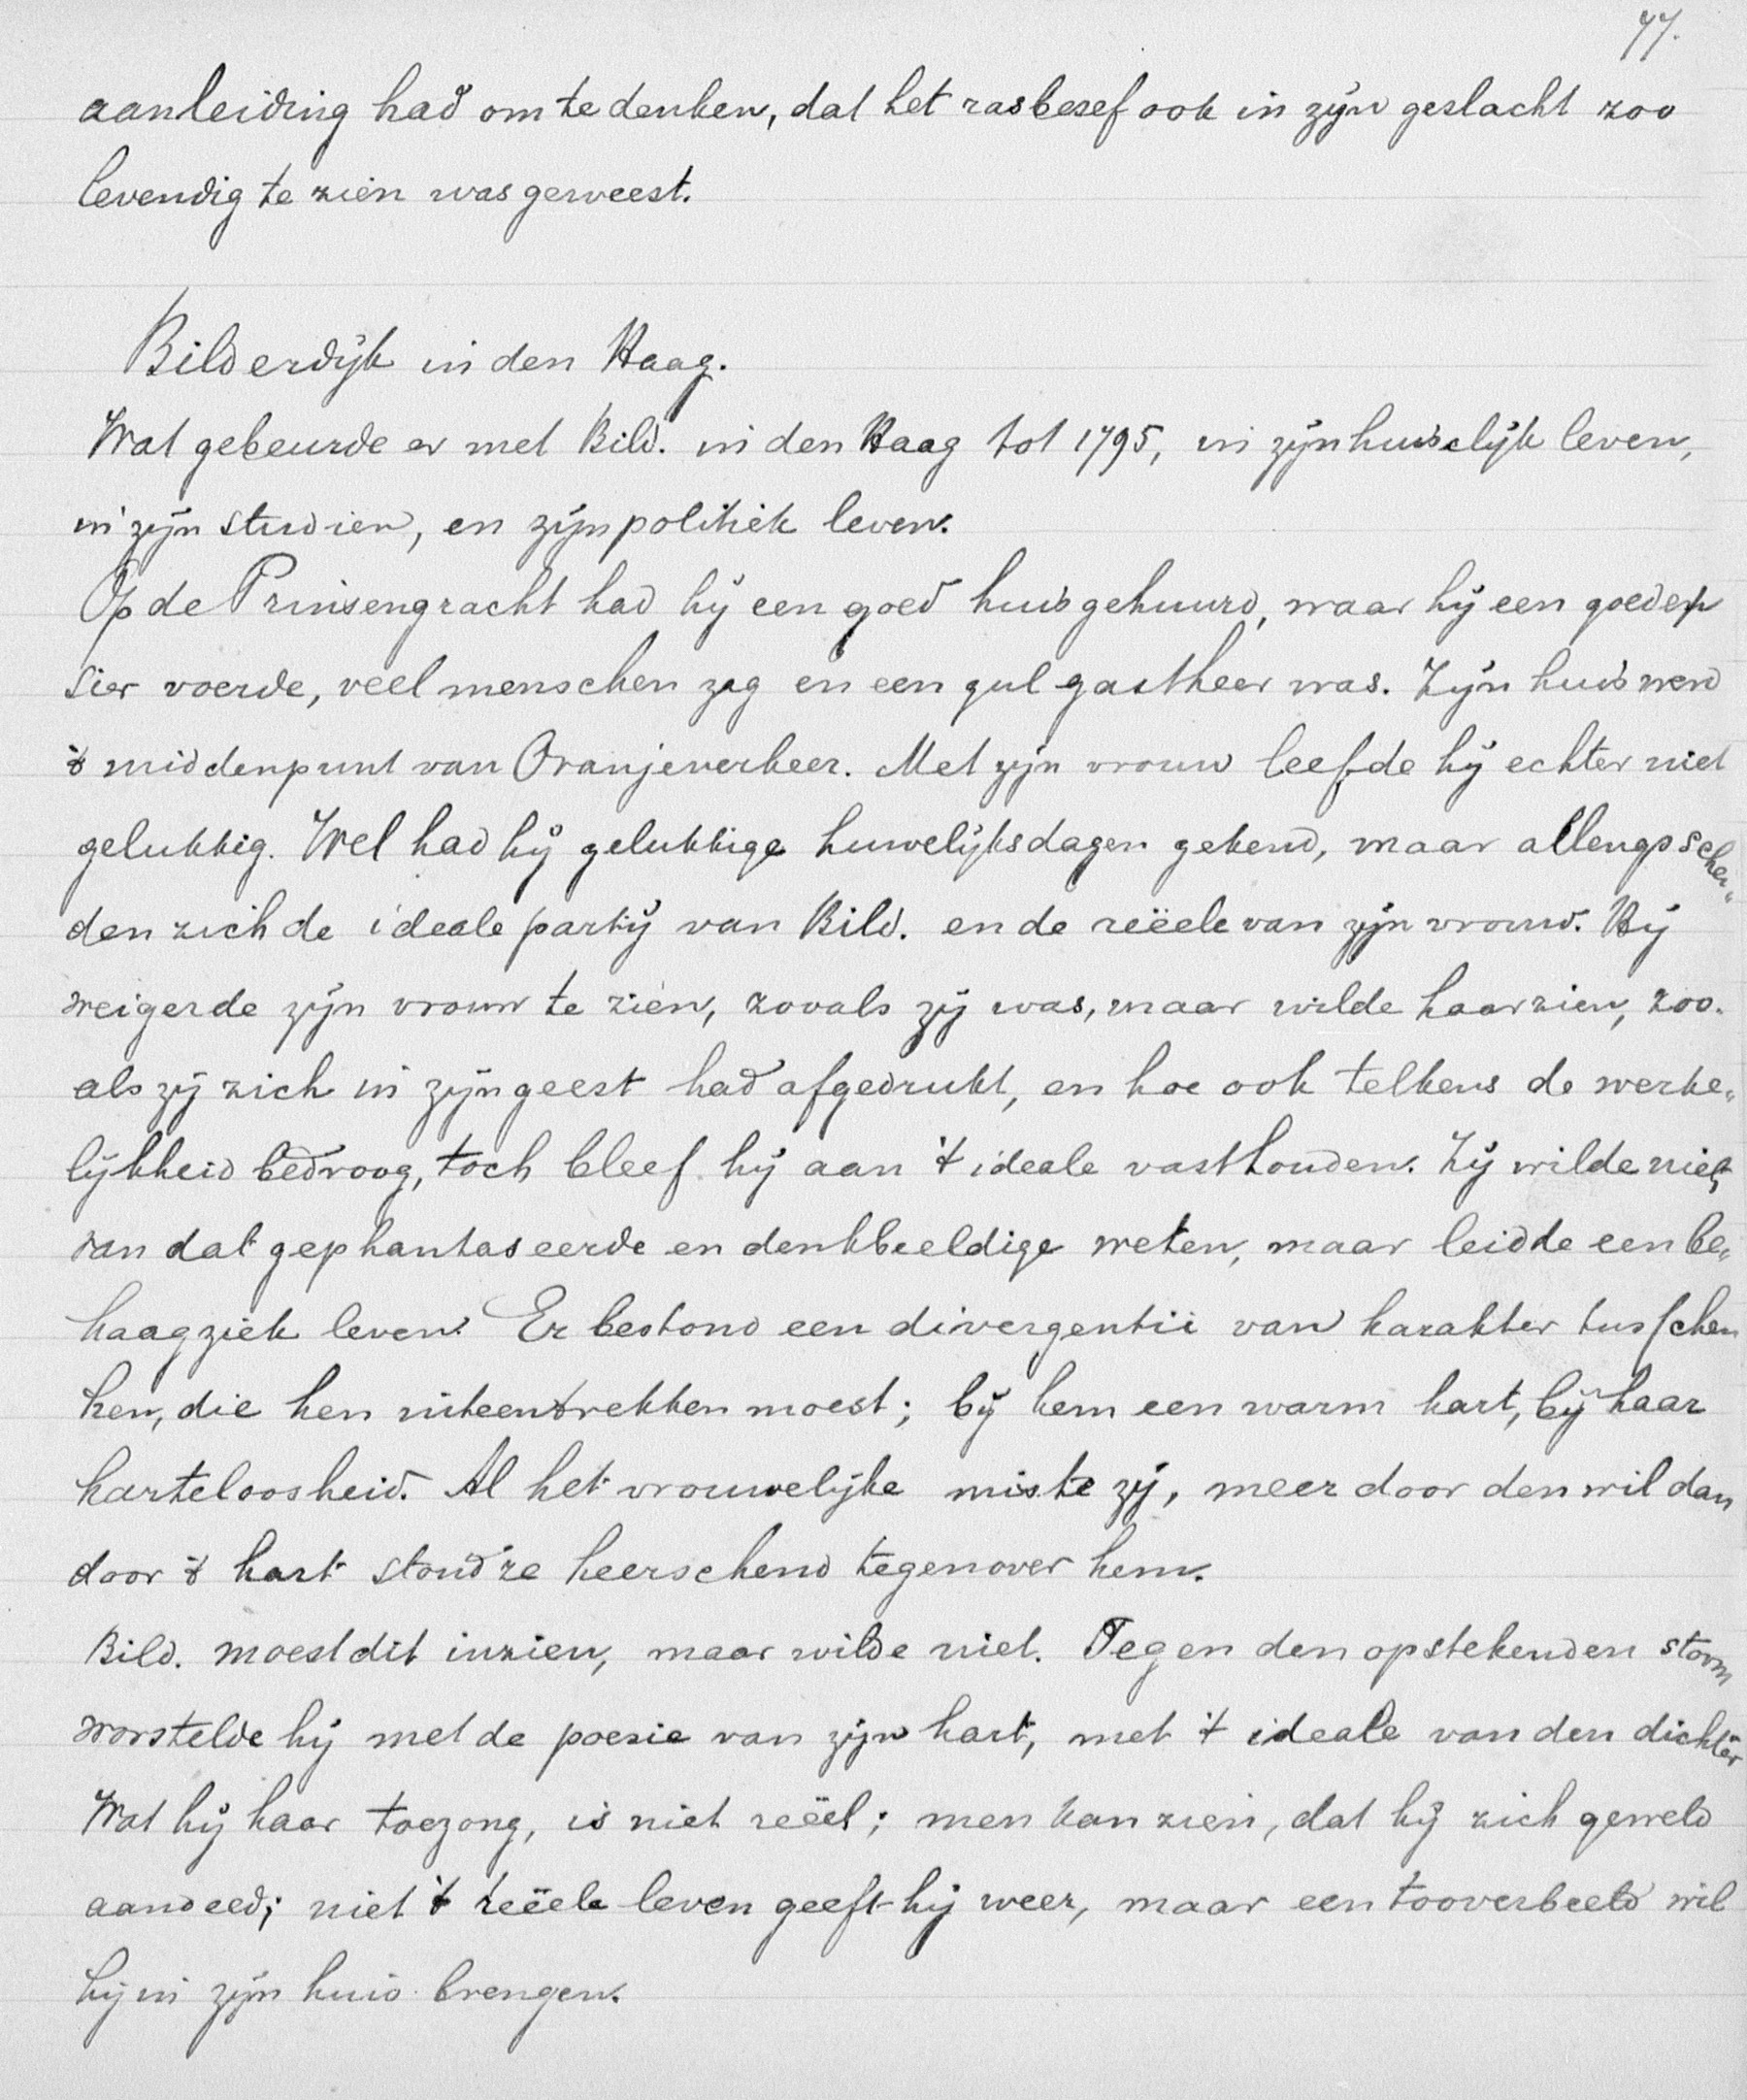 77.
aanleiding had om te denken, dat het rasbesef ook in zijn geslacht zoo
levendig te zien was geweest.
Bilderdijk in den Haag.
Wat gebeurde er met Bild. in den Haag tot 1795, in zijn huiselijk leven,
in zijn studien, en zijn politiek leven.
Op de Prinsengracht had hij een goed huis gehuurd, waar hij een goeden
sier voerde, veel menschen zag en een gul gastheer was. Zijn huis werd
't middenpunt van Oranjeverkeer. Met zijn vrouw leefde hij echter niet
gelukkig. Wel had hij gelukkige huwelijksdagen gekend, maar allengs schei„
den zich de ideale partij van Bild. en de reëele van zijn vrouw. Hij
weigerde zijn vrouw te zien, zooals zij was, maar wilde haar zien, zoo-
als zij zich in zijn geest had afgedrukt, en hoe ook telkens de werke„
lijkheid bedroog, toch bleef hij aan 't ideale vasthouden. Zij wilde niet,
van dat gephantaseerde en denkbeeldige weten, maar leidde een be„
haagziek leven. Er bestond een divergentii van karakter tusschen
hen, die hen uiteentrekken moest; bij hem een warm hart, bij haar
harteloosheid. Al het vrouwelijke miste zij, meer door den wil dan
door 't hart stond ze heerschend tegenover hem.
Bild. moest dit inzien, maar wilde niet. Tegen den opstekenden storm
worstelde hij met de poesie van zijn hart, met 't ideale van den dichter
Wat hij haar toezong, is niet reëel; men kan zien, dat hij zich geweld
aandeed; niet 't reëele leven geeft hij weer, maar een tooverbeeld wil
hij in zijn huis brengen.